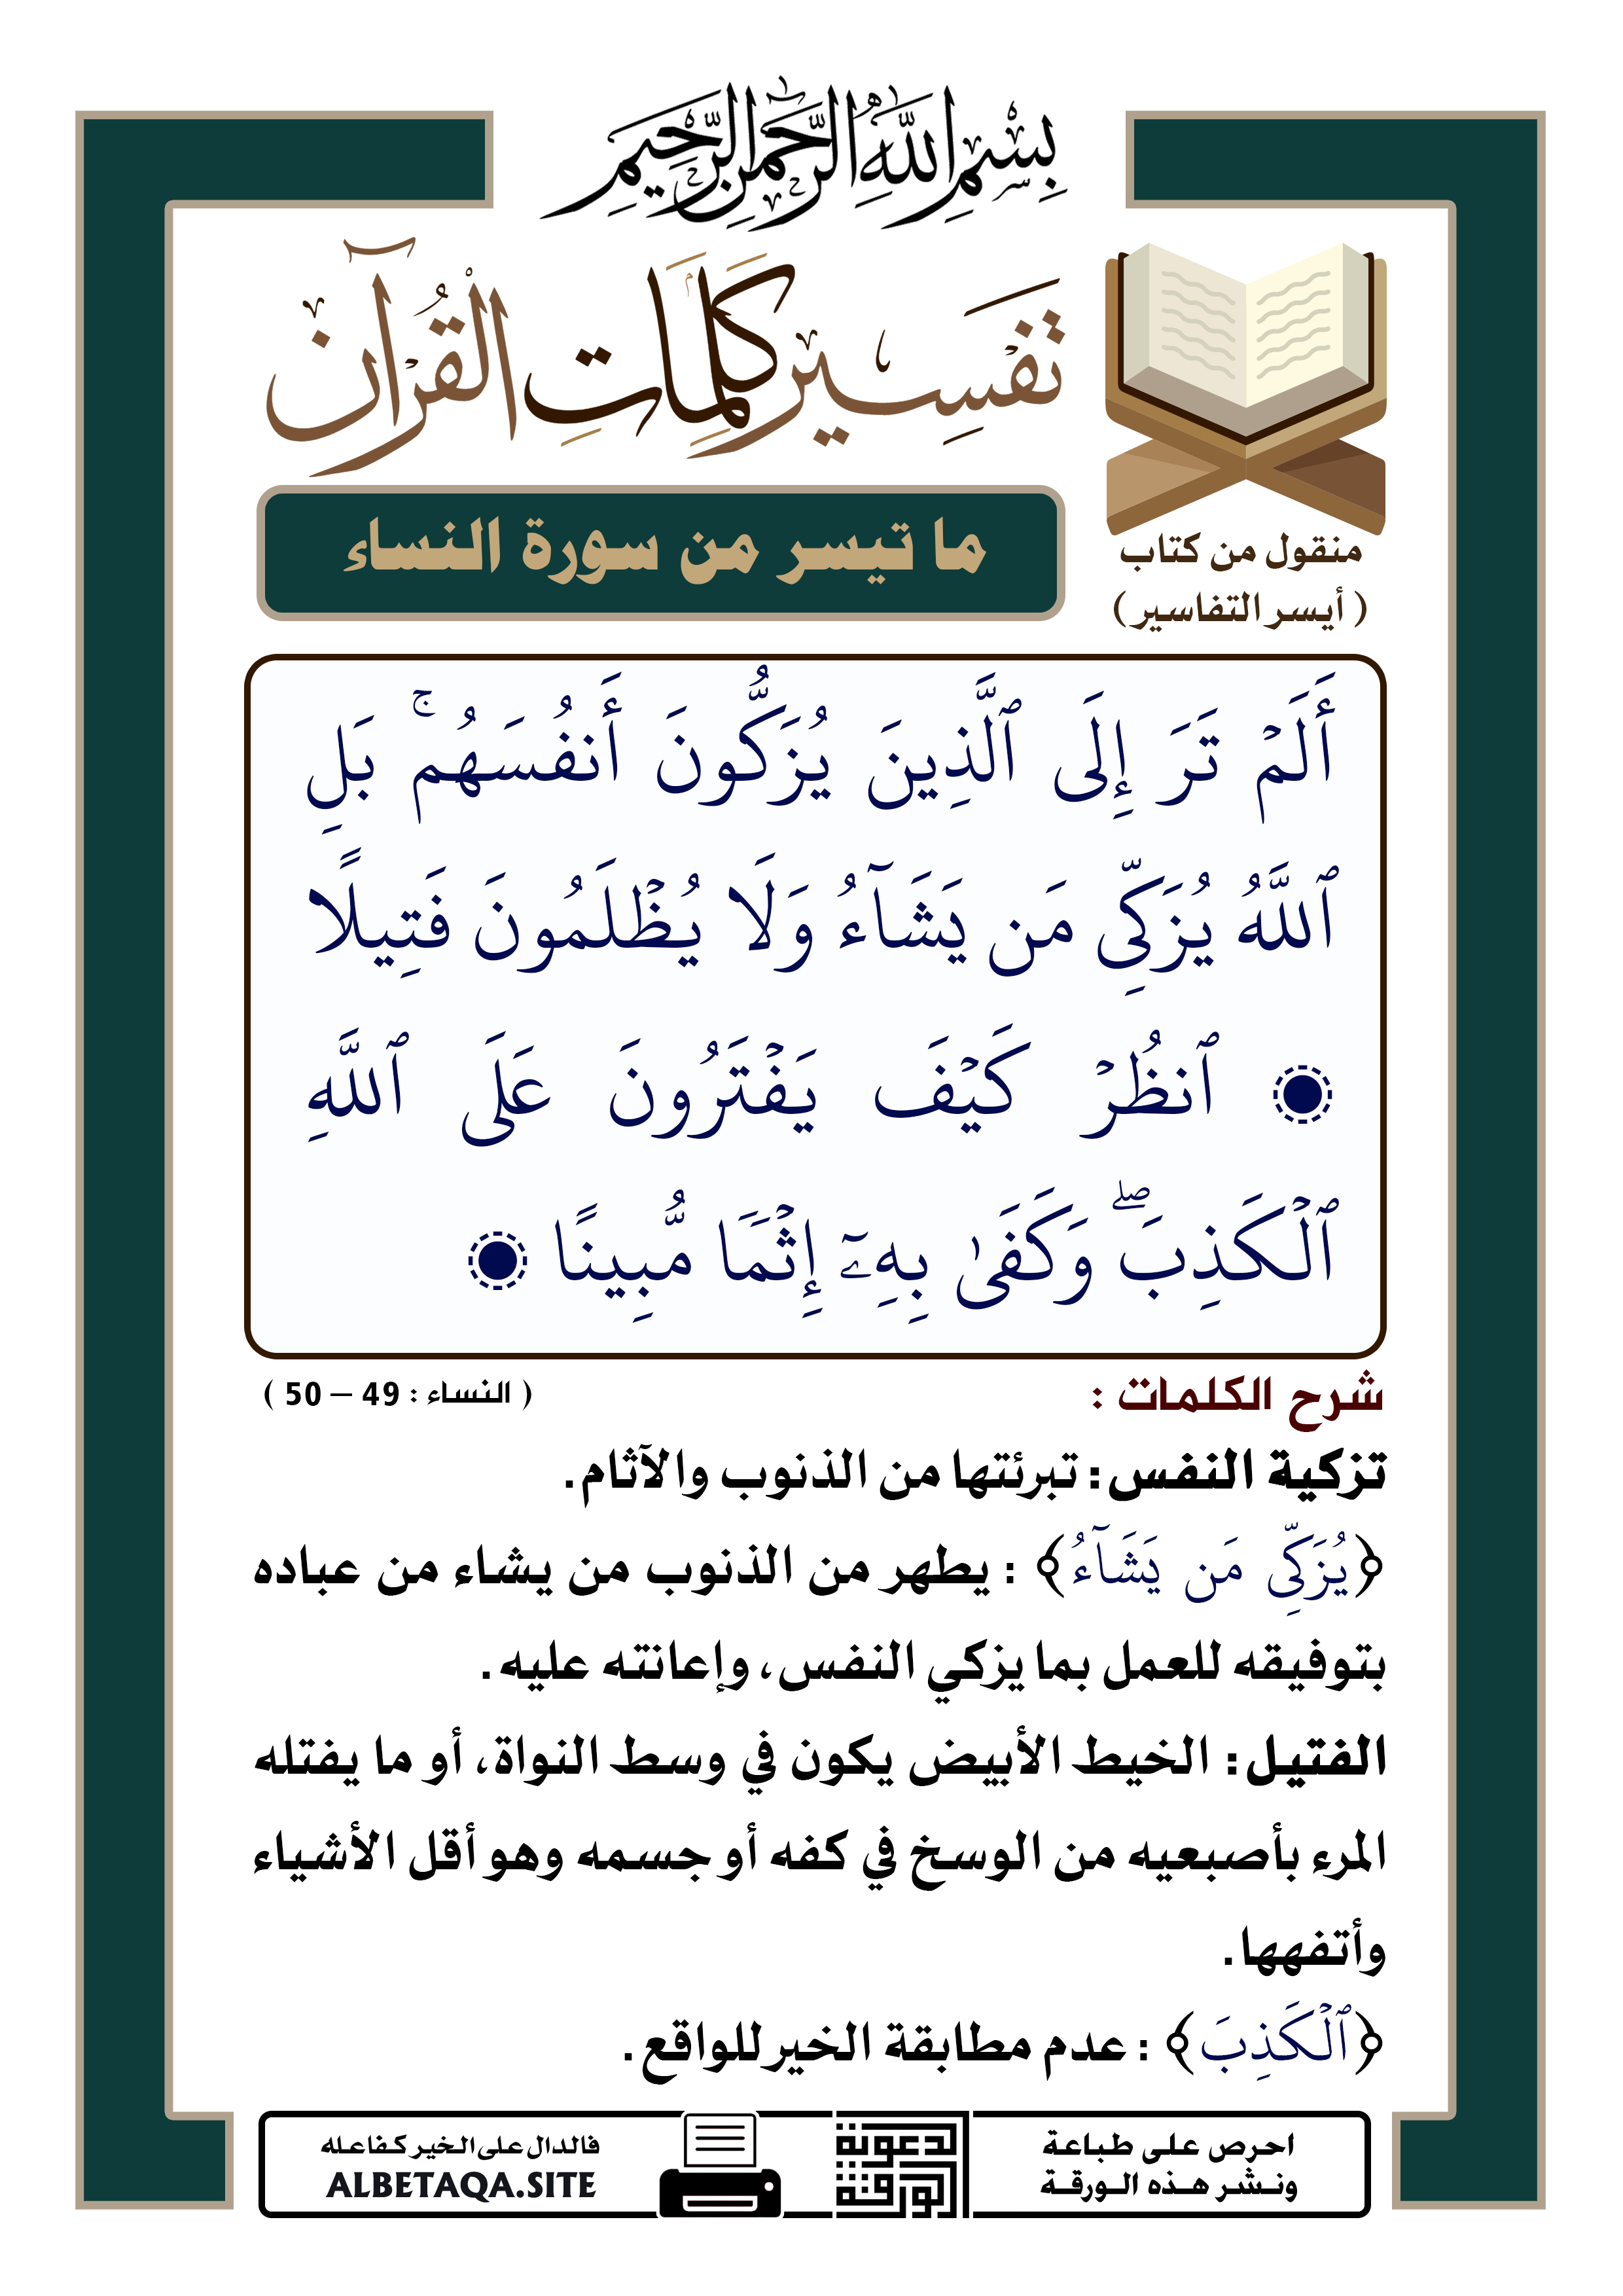 بِسْمِ اللَّهِ الرَّحْمَٰنِ الرَّحِيمِ
تَفْسِير كَلِمَاتِ القُرْآن
ما تيسر من سورة النساء
منقول من كتاب
( أيسر التفاسير )
أَلَمۡ تَرَ إِلَى ٱلَّذِينَ يُزَكُّونَ أَنفُسَهُمۚ بَلِ
ٱللَّهُ يُزَكِّي مَن يَشَآءُ وَلَا يُظۡلَمُونَ فَتِيلًا
ٱنظُرۡ كَيۡفَ يَفۡتَرُونَ عَلَى ٱللَّهِ
ٱلۡكَذِبَۖ وَكَفَىٰ بِهِۦٓ إِثۡمًا مُّبِينًا
شرح الكلمات :
( النساء : 49 – 50 )
تزكية النفس: تبرئتها من الذنوب والآثام.
﴿يُزَكِّي مَن يَشَآءُ﴾ : يطهر من الذنوب من يشاء من عباده
بتوفيقه للعمل بما يزكي النفس، وإعانته عليه.
الفتيل: الخيط الأبيض يكون في وسط النواة، أو ما يفتله
المرء بأصبعيه من الوسخ في كفه أو جسمه وهو أقل الأشياء
وأتفهها.
﴿ٱلۡكَذِبَ﴾ : عدم مطابقة الخير للواقع.
احرص على طباعة
ونشر هذه الورقة
الورقة الدعوية
فالدال على الخير كفاعله
ALBETAQA.SITE